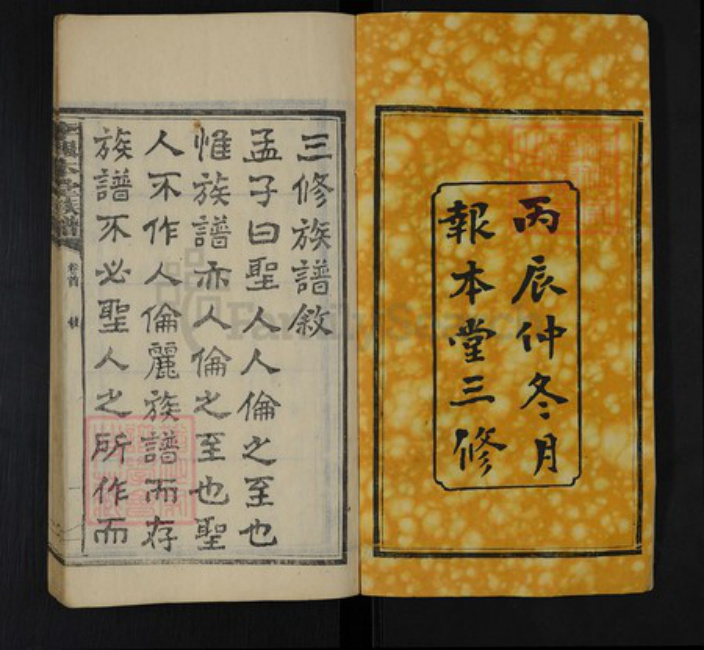 丙辰仲冬月
報本堂三修
三修族譜敘
孟子曰聖人人倫之至也
惟族譜亦人倫之至也聖
人不作人倫麗族譜而存
族譜不必聖人之所作而
族譜
卷首
FamilySearch